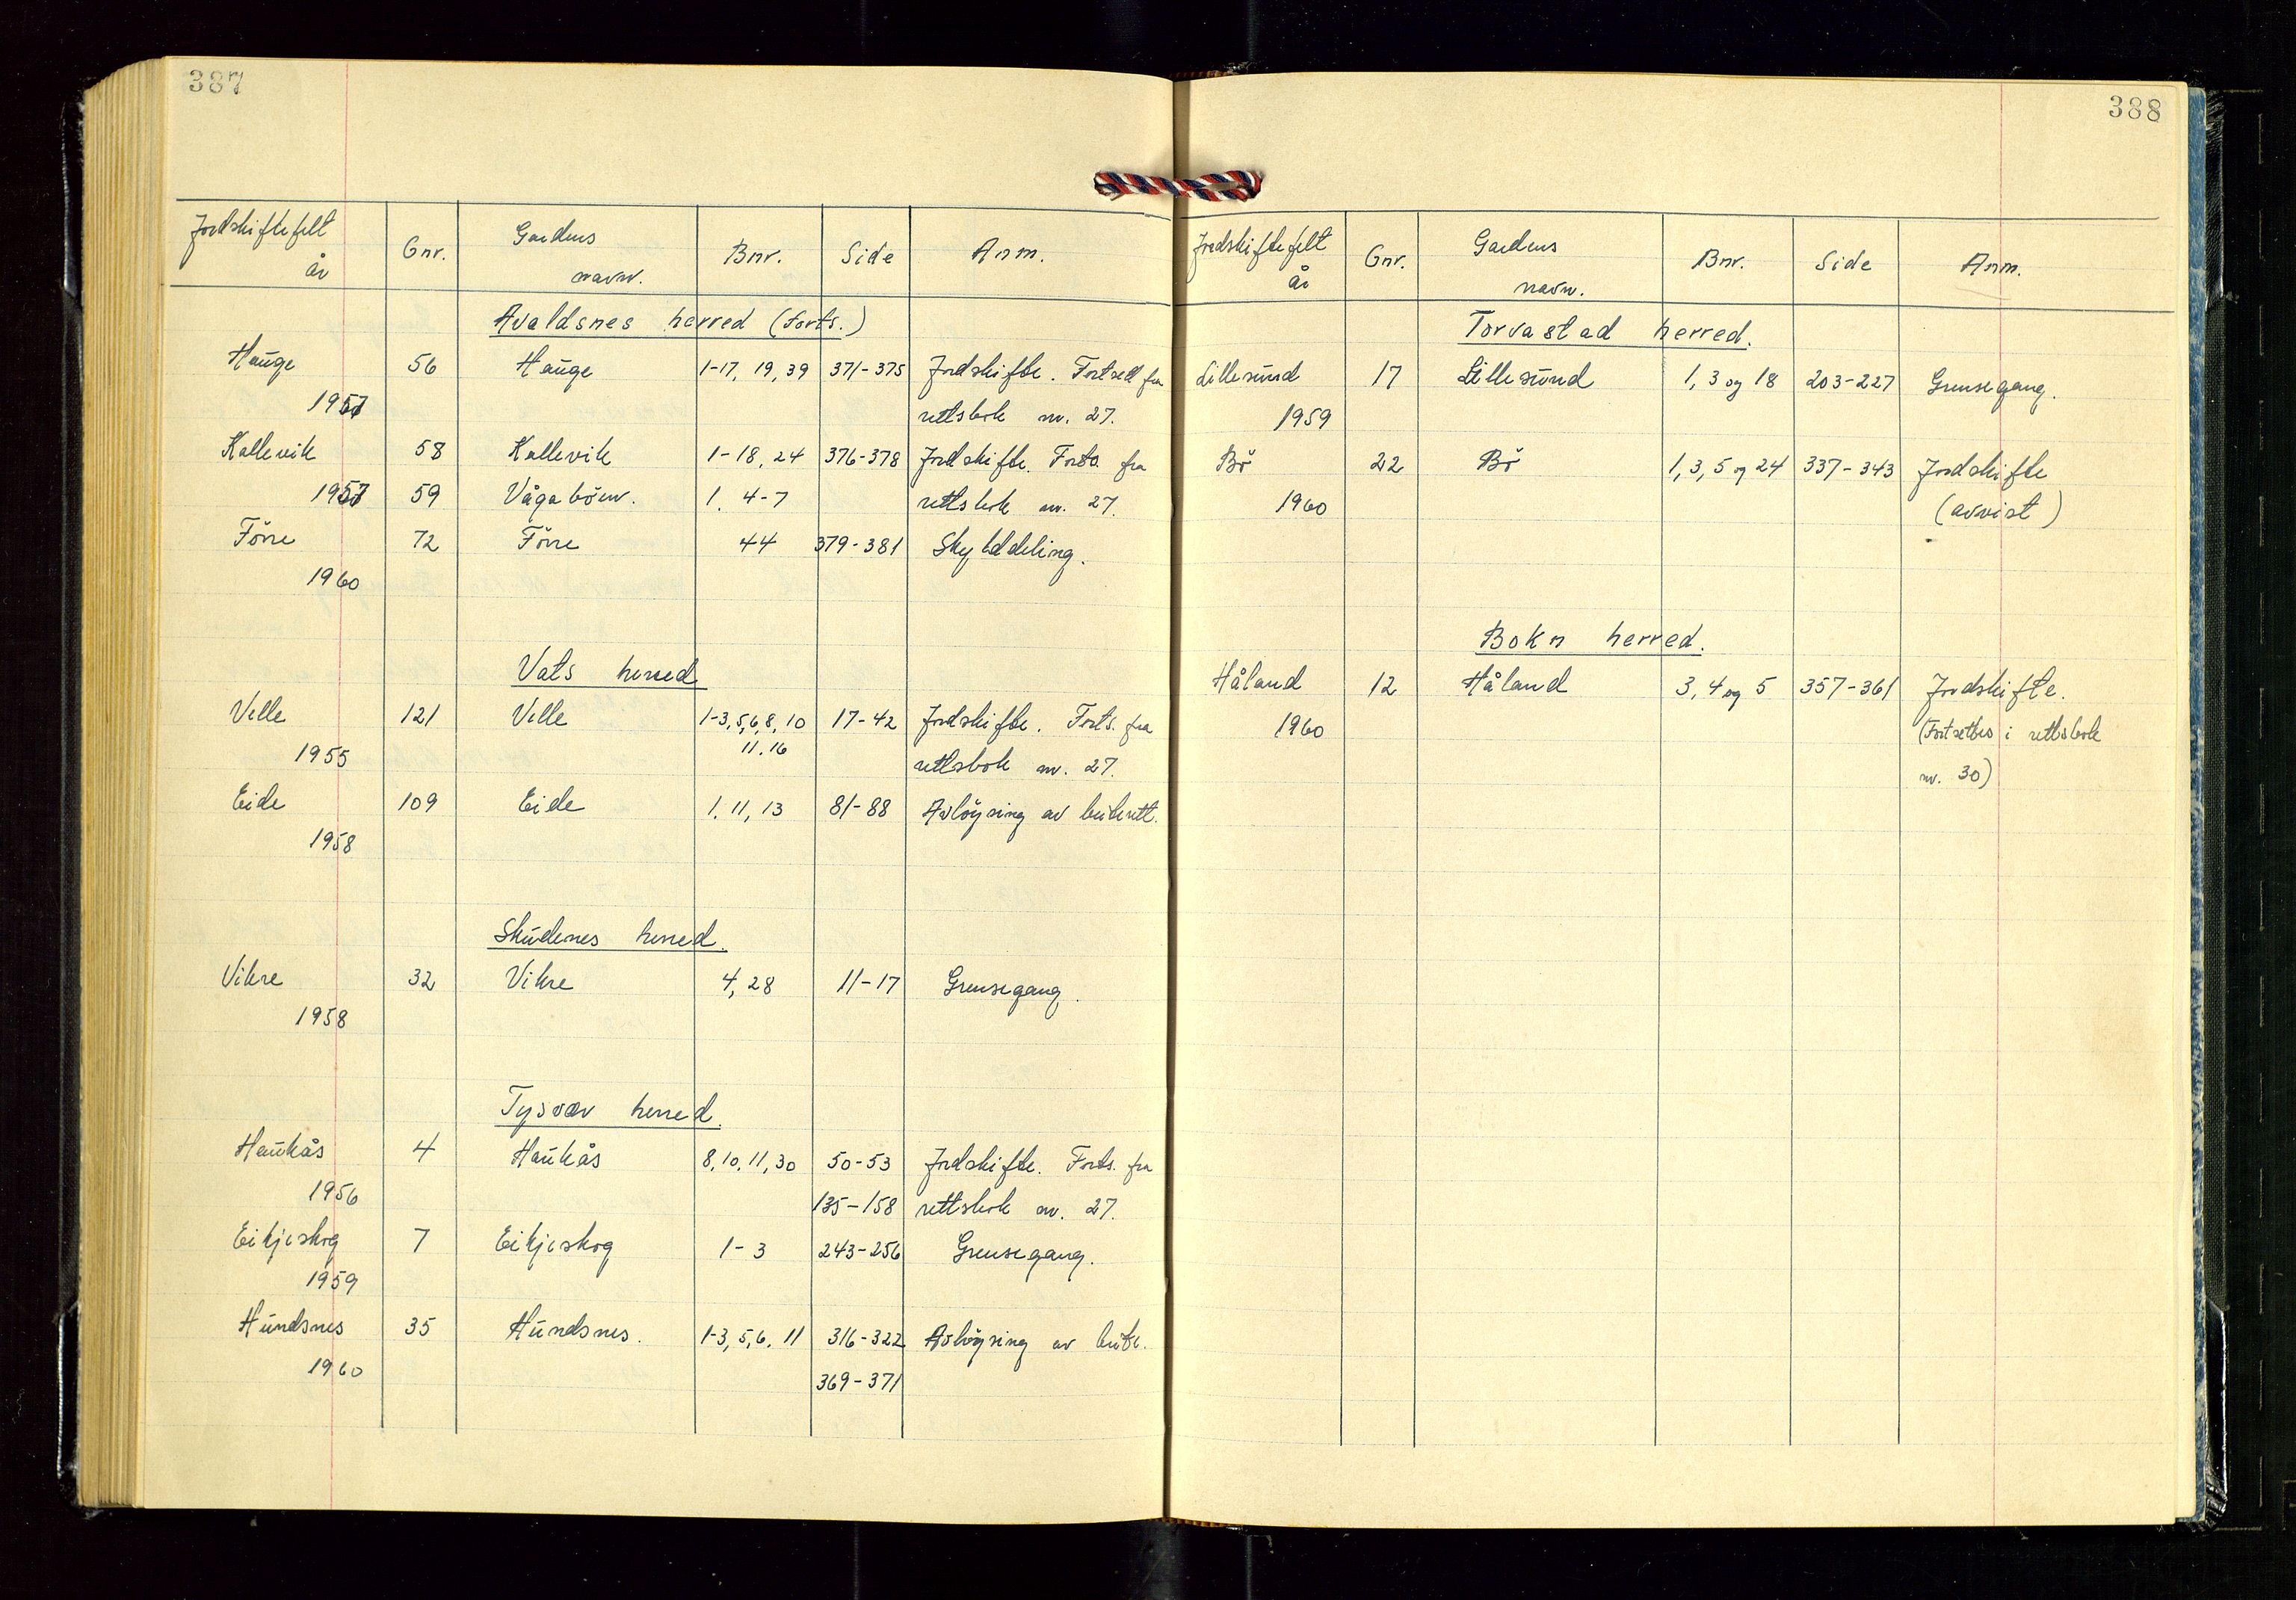 387
Jordskiftefelt år Gnr. Gardens navn. Bnr. Side Anm.
Avaldsnes herred (forts.)
Hauge 56 Hauge 1-17, 19, 39 371-375 Jordskifte. Fortsett fra
1957 rettsbok nr. 27.
Kallevik 58 Kallevik 1-18, 24 376-378 Jordskifte. Forts. fra
1957 59 Vågabøen. 1. 4-7 rettsbok nr. 27.
Förre 72 Förre 44 379-381 Skylddeling.
1960
Vats herred
Velle 121 Velle 1-3, 5, 6, 8, 10 17-42 Jordskifte. Forts. fra
1955 11. 16 rettsbok nr. 27.
Eide 109 Eide 1, 11, 13 81-88 Avlöysing av beiterett.
1958
Skudenes herred.
Vikre 32 Vikre 4, 28 11-17 Grensegang.
1958
Tysvær herred.
Haukås 4 Haukås 8, 10, 11, 30 50-53 Jordskifte. Forts. fra
1956 135-158 rettsbok nr. 27.
Eikjeskog 7 Eikjeskog 1-3 243-256 Grensegang.
1959
Hundsnes 35 Hundsnes. 1-3, 5, 6, 11 316-322 Avlöysing av beite.
1960 369-371
388
Jordskiftefelt år Gnr. Gardens navn. Bnr. Side Anm.
Torvastad herred.
Lillesund 17 Lillesund 1, 3 og 18 203-227 Grensegang.
1959
Bö 22 Bö 1, 3, 5 og 24 337-343 Jordskifte
1960 (avvist)
Bokn herred.
Håland 12 Håland 3, 4 og 5 357-361 Jordskifte.
1960 (Fortsettes i rettsbok
nr. 30)